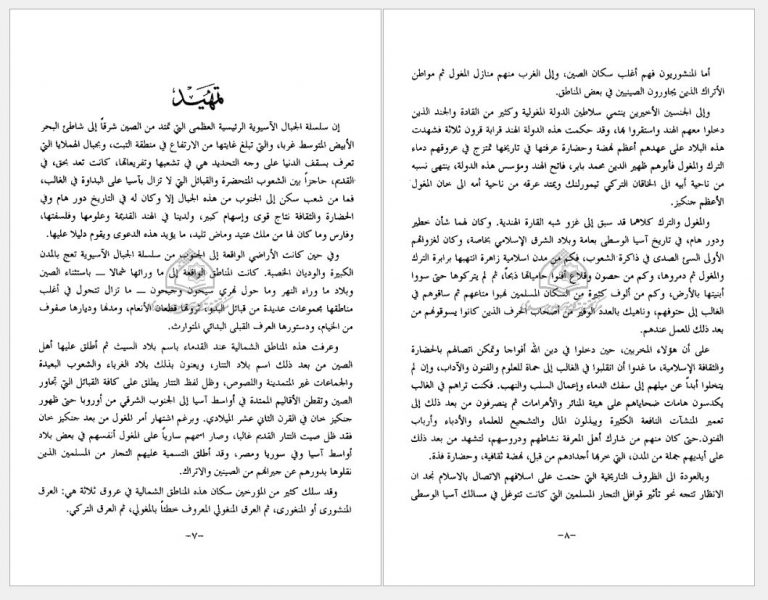 تمهيد
إن سلسلة الجبال الآسيوية الرئيسية العظمى التي تمتد من الصين شرقاً إلى شاطئ البحر
الأبيض المتوسط غرباء والتي تبلغ غايتها من الارتفاع في منطقة التبت، وبجبال الهملايا التي
تعرف بسقف الدنيا على وجه التحديد هي في تشعبها وتفريعاتها، كانت تعد بحق، في
القديم، حاجزاً بين الشعوب المتحضرة والقبائل التي لا تزال بآسيا على البداوة في الغالب،
فما من شعب سكن إلى الجنوب من هذه الجبال إلا وكان له في التاريخ دور هام وفي
الحضارة والثقافة نتاج قوى وإسهام كبير، ولدينا في الهند القديمة وعلومها وفلسفتها،
وفارس وما كان لها من ملك عتيد وماض تليد، ما يؤيد هذه الدعوى ويقوم دليلا عليها.
وفي حين كانت الأراضي الواقعة إلى الجنوب من سلسلة الجبال الآسيوية تعج بالمدن
الكبيرة والوديان الخصبة. كانت المناطق الواقعة إلى ما ورائها شمالا — باستثناء الصين
وبلاد ما وراء النهر وما حول نهري سيحون وجيحون — ما تزال تتحول في أغلب
مناطقها مجموعات عديدة من قبائل البدو، ثروتها قطعان الأنعام، ومدنها وديارها صفوف
من الخيام، ودستورها العرف القبلى البدائي المتوارث.
وعرفت هذه المناطق الشمالية عند القدماء باسم بلاد السيت ثم أطلق عليها أهل
الصين من بعد ذلك اسم بلاد التتار، ويعنون بذلك بلاد الغرباء والشعوب البعيدة
والجماعات غير المتمدينة واللصوص، وظل لفظ التتار يطلق على كافة القبائل التي تجاور
الصين وتقطن الأقاليم الممتدة في أواسط آسيا إلى الجنوب الشرقي من أوروبا حتى ظهور
جنكيز خان في القرن الثاني عشر الميلادي. وبرغم اشتهار أمر المغول من بعد جنكيز خان
فقد ظل صيت التتار القدم غالبا، وصار اسمهم سارياً على المغول أنفسهم في بعض بلاد
أواسط آسيا وفي سوريا ومصر، وقد أطلق التسمية عليهم التجار من المسلمين الذين
نقلوها بدورهم عن جيرانهم من الصينين والاتراك.
وقد سلك كثير من المؤرخين سكان هذه المناطق الشمالية في عروق ثلاثة هي: العرق
المنشورى أو المنغورى، ثم العرق المنغولي المعروف خطئاً بالمغولي، ثم العرق التركي.
-٧-
أما المنشوريون فهم أغلب سكان الصين، وإلى الغرب منهم منازل المغول ثم مواطن
الأتراك الذين يجاورون الصينيين في بعض المناطق.
وإلى الجنسين الأخيرين ينتمي سلاطين الدولة المغولية وكثير من القادة والجند الذين
دخلوا معهم الهند واستقروا بها، وقد حكمت هذه الدولة الهند قرابة قرون ثلاثة فشهدت
هذه البلاد على عهدهم أعظم نهضة وحضارة عرفتها في تاريخها تمتزج في عروقهم دماء
الترك والمغول فأبوهم ظهير الدين محمد بابر، فاتح الهند ومؤسس هذه الدولة، ينتهى نسبه
من ناحية أبيه الى الخاقان التركي تيمورلنك ويمتد عرقه من ناحية أمه الى خان المغول
الأعظم جنكيز.
والمغول والترك كلاهما قد سبق إلى غزو شبه القارة الهندية. وكان لهما شأن خطير
ودور هام، في تاريخ آسيا الوسطى بعامة وبلاد الشرق الإسلامي بخاصة، وكان لغزواتهم
الأولى السئ الصدى في ذاكرة الشعوب، فكم من مدن اسلامية زاهرة انتهبها برابرة الترك
والمغول ثم دمروها، وكم من حصون وقلاع أفنوا حامياتها ذبحاً، ثم لم يتركوها حتى سووا
أبنيتها بالأرض، وكم من ألوف كثيرة من السكان المسلمين نهبوا متاعهم ثم ساقوهم في
الغالب إلى حتوفهم، وناهيك بالعدد الوفير من أصحاب الحرف الذين كانوا يسوقونهم من
بعد ذلك للعمل عندهم.
على أن هؤلاء المخربين، حين دخلوا في دين الله أفواجا وتمكن اتصالهم بالحضارة
والثقافة الإسلامية، ما غدوا أن انقلبوا في الغالب إلى حماة للعلوم والفنون والآداب، وإن لم
يتخلوا أبداً عن ميلهم إلى سفك الدماء وإعمال السلب والنهب. فكنت تراهم في الغالب
يكدسون هامات ضحاياهم على هيئة المنائر والأهرامات ثم ينصرفون من بعد ذلك إلى
تعمير المنشآت النافعة الكثيرة ويبذلون المال والتشجيع للعلماء والأدباء وأرباب
الفنون.حتى كان منهم من شارك أهل المعرفة نشاطهم ودروسهم، لتشهد من بعد ذلك
على أيديهم جملة من المدن، التي خربها أجدادهم من قبل، نهضة ثقافية، وحضارة فذة.
وبالعودة الى الظروف التاريخية التي حتمت على اسلافهم الاتصال بالاسلام نجد ان
الانظار تتجه نحو تأثير قوافل التجار المسلمين التي كانت تتوغل في مسالك آسيا الوسطى
-٨-